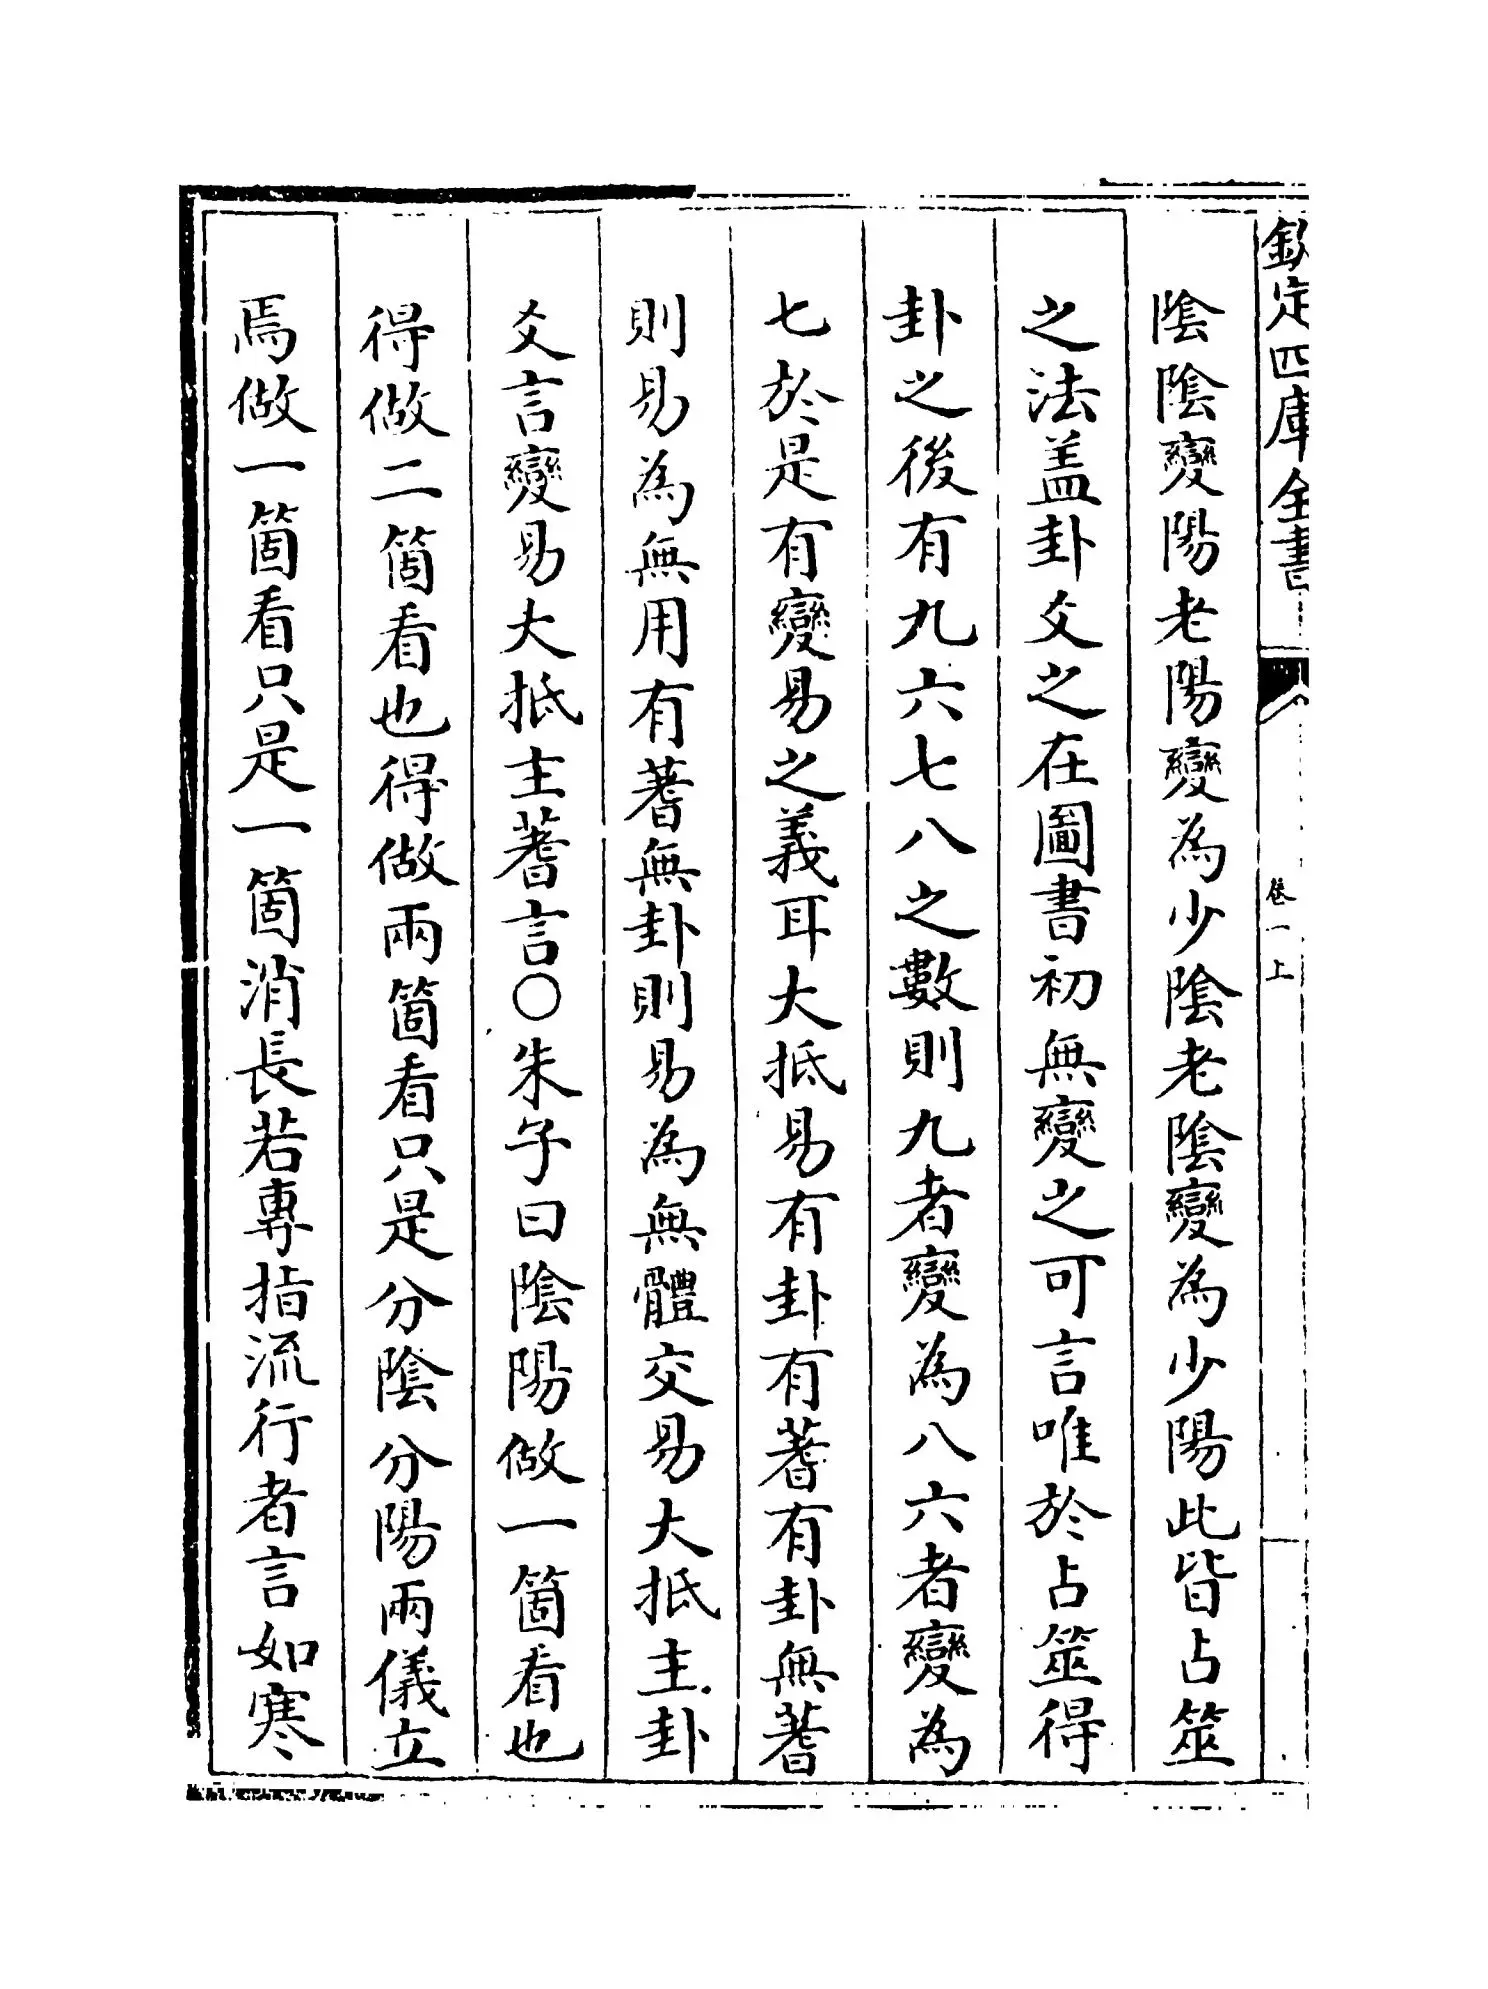 欽定四庫全書
卷一上
陰陰變陽老陽變為少陰老陰變為少陽此皆占筮
之法盖卦爻之在圖書初無變之可言唯於占筮得
卦之後有九六七八之數則九者變為八六者變為
七於是有變易之義耳大抵易有卦有蓍有卦無蓍
則易為無用有蓍無卦則易為無體交易大抵主卦
爻言變易大抵主蓍言○朱子曰陰陽做一箇看也
得做二箇看也得做兩箇看只是分陰分陽兩儀立
焉做一箇看只是一箇消長若專指流行者言如寒